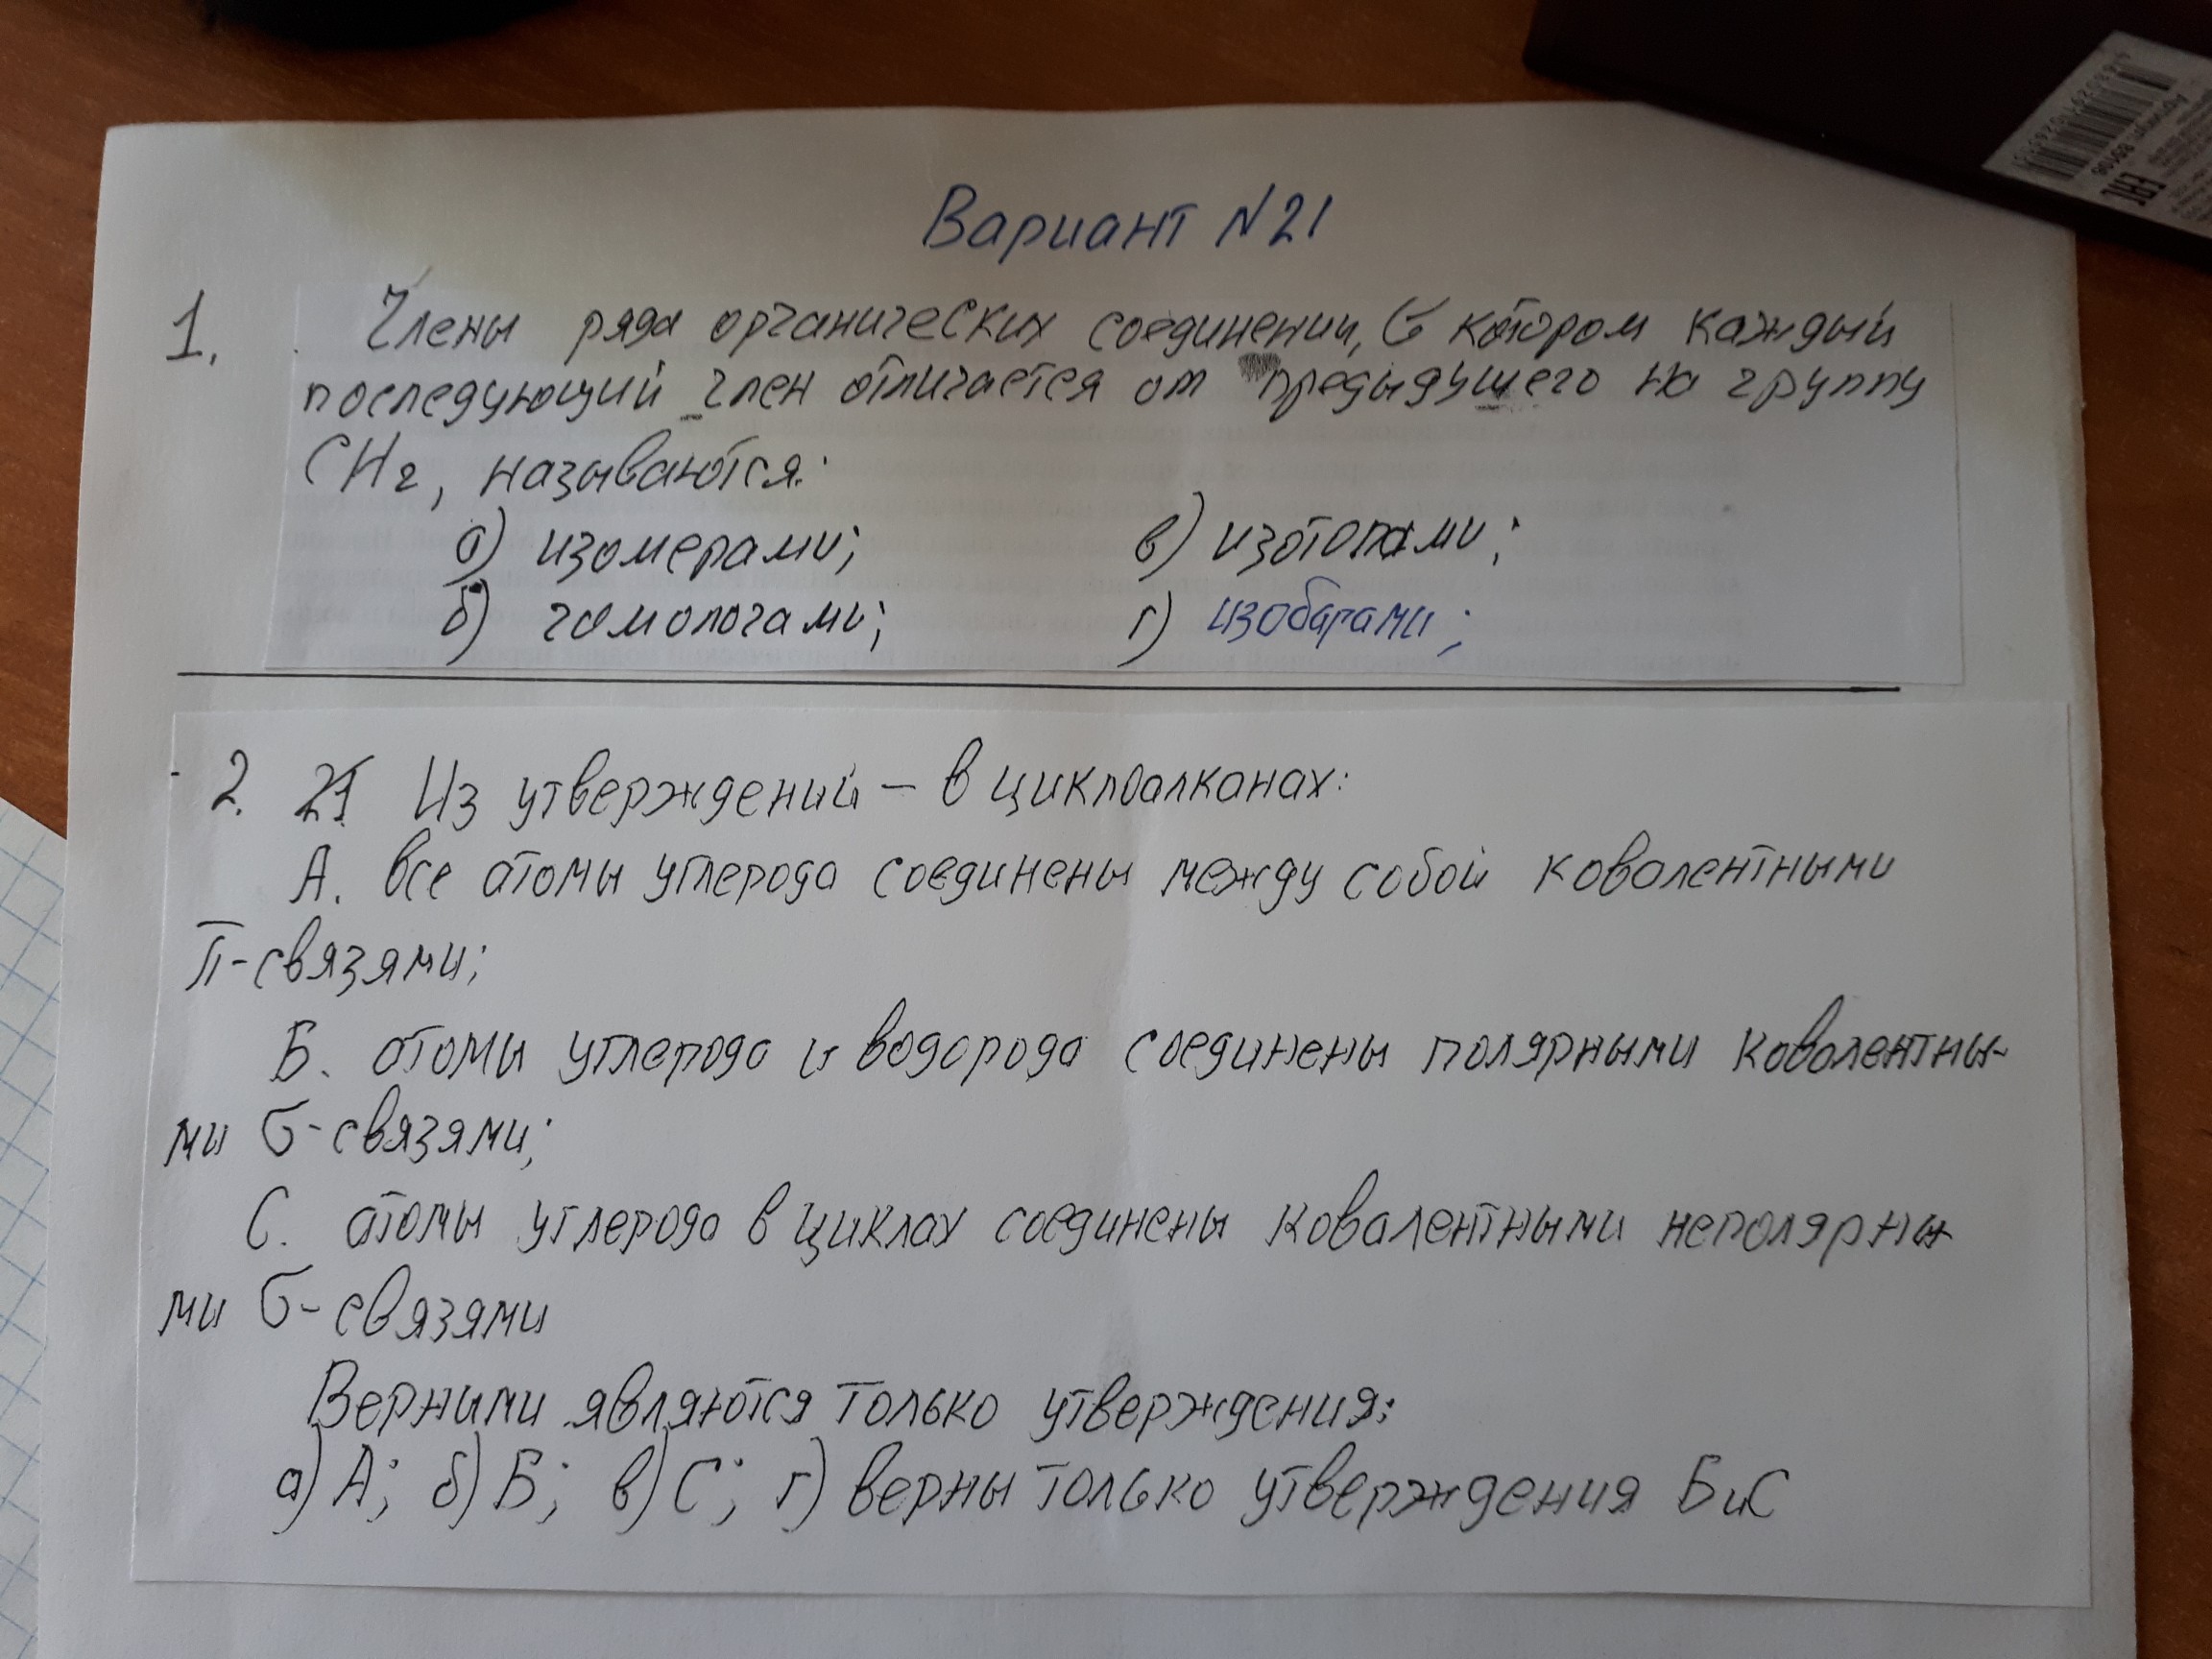 Вариант N21
1. Члены ряда органических соединении, в котором каждый
последующий член отличается от предыдущего на группу
CH2, называются:
а) изомерами; в) изотопами;
б) гомологами; г) изобарами;
2. 21 Из утверждений – в циклоалканах:
А. все атомы углерода соединены между собой ковалентными
π-связями;
Б. атомы углерода и водорода соединены полярными ковалентны-
ми σ-связями;
С. атомы углерода в циклах соединены ковалентными неполярны-
ми σ-связями
Верными являются только утверждения:
а) А; б) Б; в) С; г) верны только утверждения Б и С
ЕАС